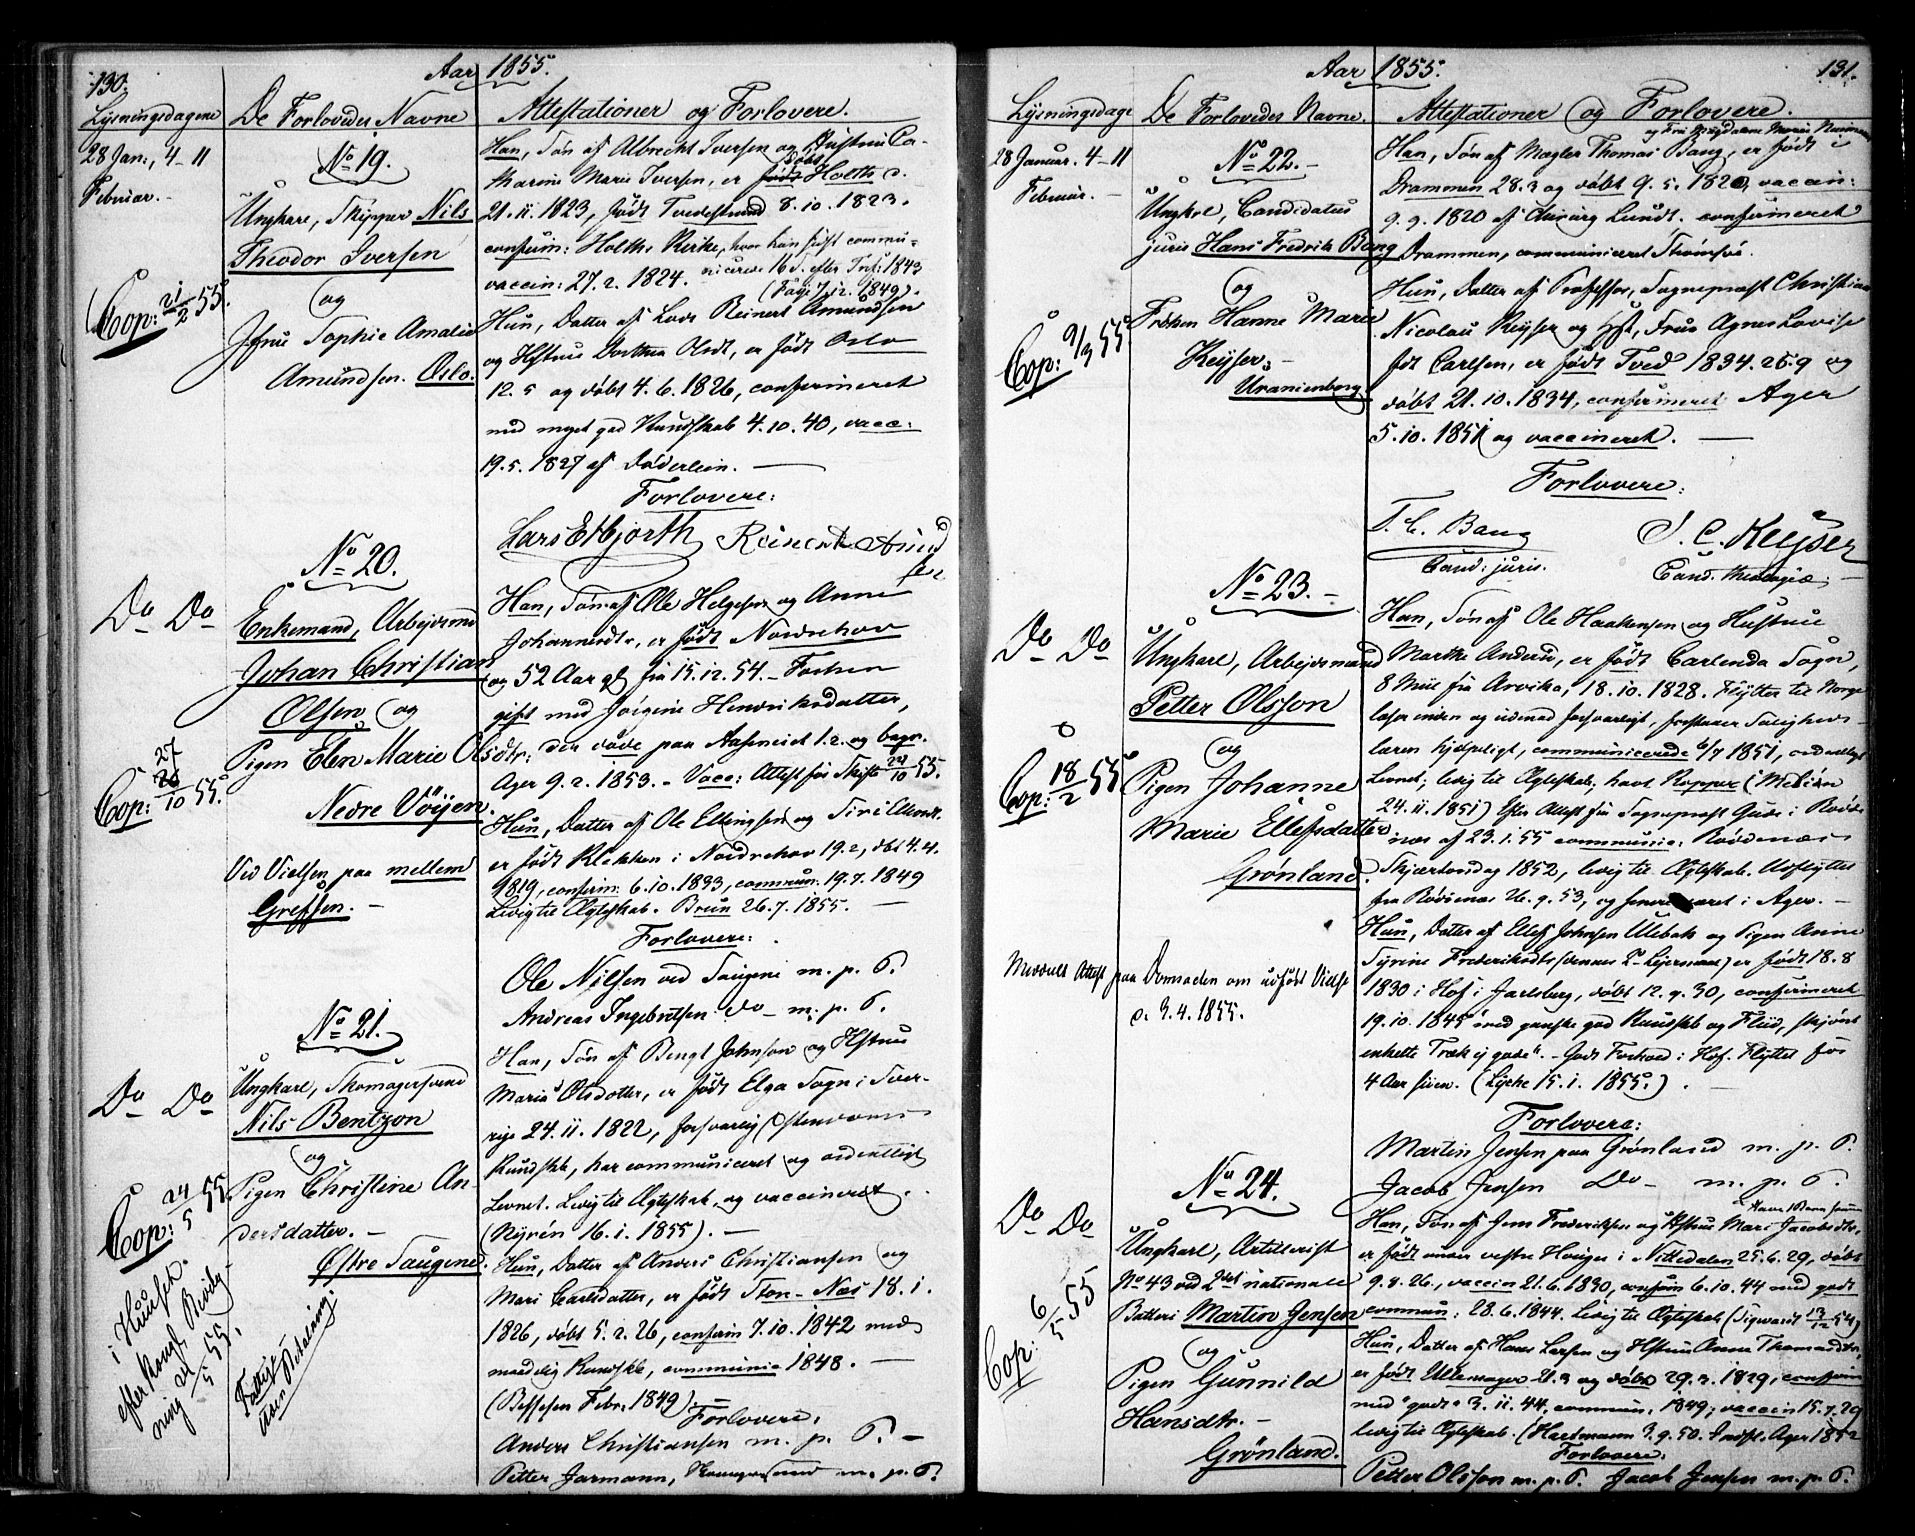 130.
Aar 1855.
Lysningsdagene
De Forlovedes Navne
Attestationer og Forlovere.
28 Jan:, 4-11
Februar.
No 19.
Ungkarl, Skipper Nils
Theodor Iversen
og
Jfru Sophie Amalie
Amundsen. Oslo.
Cop: 21/2 55.
Han, Søn af Albrecht Iversen og Hustru Ca-
tharine Marie Iversen, er døbt Holths d.
21.11.1823, født Tvedestrand 8.10.1823.
confirm: Holths Kirke, hvor han sidst commu-
nicerede 16 S. efter Trit: 1843
vaccin: 27.2.1824.
Hun, Datter af Lods Reinert Amundsen
og Hstru Dorthea Olsdt, er født Oslo
12.5 og døbt 4.6.1826, confirmeret
med meget god Kundskab 4.10.40, vacc:
19.5.1827 af Døderlein.
Forlovere:
Lars Esbjorth Reinert Amund
sen
No 20.
Do Do
Enkemand, Arbejdsmd
Johan Christian
Olsen og
Pigen Elen Marie Olsdtr:
Nedre Vöyen.
Cop: 27/10 55.
Ved Vielsen paa mellem
Grefsen.
Han, Søn af Ole Helgesen og Anne
Johannesdtr, er født Norderhov
og 52 Aar gl fra 15.12.54. Forhen
gift med Jørgine Henriksdatter,
der døde paa Aaserud 1.2. og begr.
Ager 9.2.1853. - Vacc: Attest for Skifte 27/10 55.
Hun, Datter af Ole Ellingsen og Siri
er født Klekken i Norderhov 19.2, døbt 4.4.
1819, confirm: 6.10.1833, commun. 19.7.1849
Ledig til Ægteskab. Brun 26.7.1855.
Forlovere:
Ole Nilsen ved Saugene m. p. P.
Andreas Ingebretsen do m. p. P.
No 21.
Do Do
Ungkarl, Skomagersvend
Nils Bentzon
og
Pigen Christine An-
dersdatter.
Østre Saugene.
Cop: 24/5 55
i Huset
efter Kongl. Bevilg-
ning 21/5 55.
Fattigt
uden Betaling.
Han, Søn af Bengt Johnson og Hstru
Maria Olsdotter, er født Elga Sogn i Sver-
rige 24.11.1822, forsvarlig Christendoms
Kundskb, har communiceret og ordentligt
Levnet. Ledig til Ægteskab og vaccineret.
(Nyrén 16.1.1855).
Hun, Datter af Anders Christiansen og
Mari Carlsdatter, er født Ston-Næs 18.1.
1826, døbt 5.2.26, confirm 7.10.1842 med
maadelig Kundskb, communic 1848.
(Bessesen Febr. 1849)
Forlovere:
Anders Christiansen m. p. P.
Petter Jarmann, m. p. P.
131.
Aar 1855.
Lysningsdage
De Forlovedes Navne.
Attestationer og Forlovere.
28 Januar. 4-11
Februar.
No 22.
Ungkrl, Candidatus
juris Hans Fredrik Bang
og
Frøken Hanne Marie
Keyser.
Uranienborg
Cop: 9/3 55.
Han, Søn af Mægler Thomas Bang, er født i
Drammen 28.3 og døbt 9.5.1820, vaccin:
9.9.1820 af Chirurg Lundt. confirmeret
Drammen, communiceret Strømsø.
Hun, Datter af Professor, Sogneprest Christian
Nicolai Keyser og Hst, Frue Agnes Lovise
fdt Carlsen, er født Tved 1834.26.9 og
døbt 21.10.1834, confirmeret Ager
5.10.1851 og vaccineret.
Forlovere:
T. C. Bang J. C. Keyser
Cand: juris. Cand. theologiæ.
No 23.
Do Do
Ungkarl, Arbejdsmand
Petter Olsson
og
Pigen Johanne
Marie Ellefsdatter
Grønland.
Cop: 18/2 55
Meddelt Attest paa Domsøden om udført Vielse
d. 3.4.1855.
Han, Søn af Ole Haakensen og Hustru
Marthe Anders, er født Carlanda Sogn,
8 Miil fra Arvika, 18.10.1828. Flytter til Norge
læser inden og udenad forsvarligt, forstaaer Saligheds-
læren hjelpeligt, communicerede 6/7 1851, ordentligt
Levnet; ledig til Ægteskab, havt Kopper (Melién
24.11.1851) Efter Attest fra Sogneprest Gude i Rødde-
næs af 23.1.55 communic: Røddenæs
Skjærtorsdag 1852, ledig til Ægteskab. Udflyttet
fra Rødenæs 26.9.53, og senere været i Ager.
Hun, Datter af Ellef Johnsen Ulebak og Pigen Anne
Syrine Frederiksdtr (dennes 2- Lejermaal) er født 18.8
1830 i Hof i Jarlsberg, døbt 12.9.30, confirmeret
19.10.1845 "med ganske god Kundskb og Flid, skjønt
enkelte Træk ej gode". - Godt Forhold i Hof. Flyttet for
4 Aar siden. (Lyche 15.1.1855.)
Forlovere:
Martin Jensen paa Grønland m. p. P.
Jacob Jensen Do m. p. P.
No 24.
Do Do
Ungkarl, Artillerist
No 43 ved 2det nationale
Batteri Martin Jensen
og
Pigen Gunnild
Hansdtr.
Grønland.
Cop: 6/5 55
Han, Søn af Jens Frederiksen og Hstru Mari Jacobsdtr,
er født under vestre Houger i Nittedalen 25.6.29, døbt
9.8.26., vaccin 21.6.1830, confirm 6.10.44 med godt
commun: 28.6.1844. Ledig til Ægteskab (Sigwardt 13/12 54)
Hun, Datter af Hans Larsen og Hstru Anne Thomasdtr,
er født Ullensager 21.3 og døbt 29.3.1829, confirm
med "godt" 3.11.44, commun. 1849; vaccin 15.7.29
ledig til Ægteskab. (Hartmann 3.9.50. Indfl. Ager 1852
Forlovere:
Petter Olsson m. p. P. Jacob Jensen m. p. P.